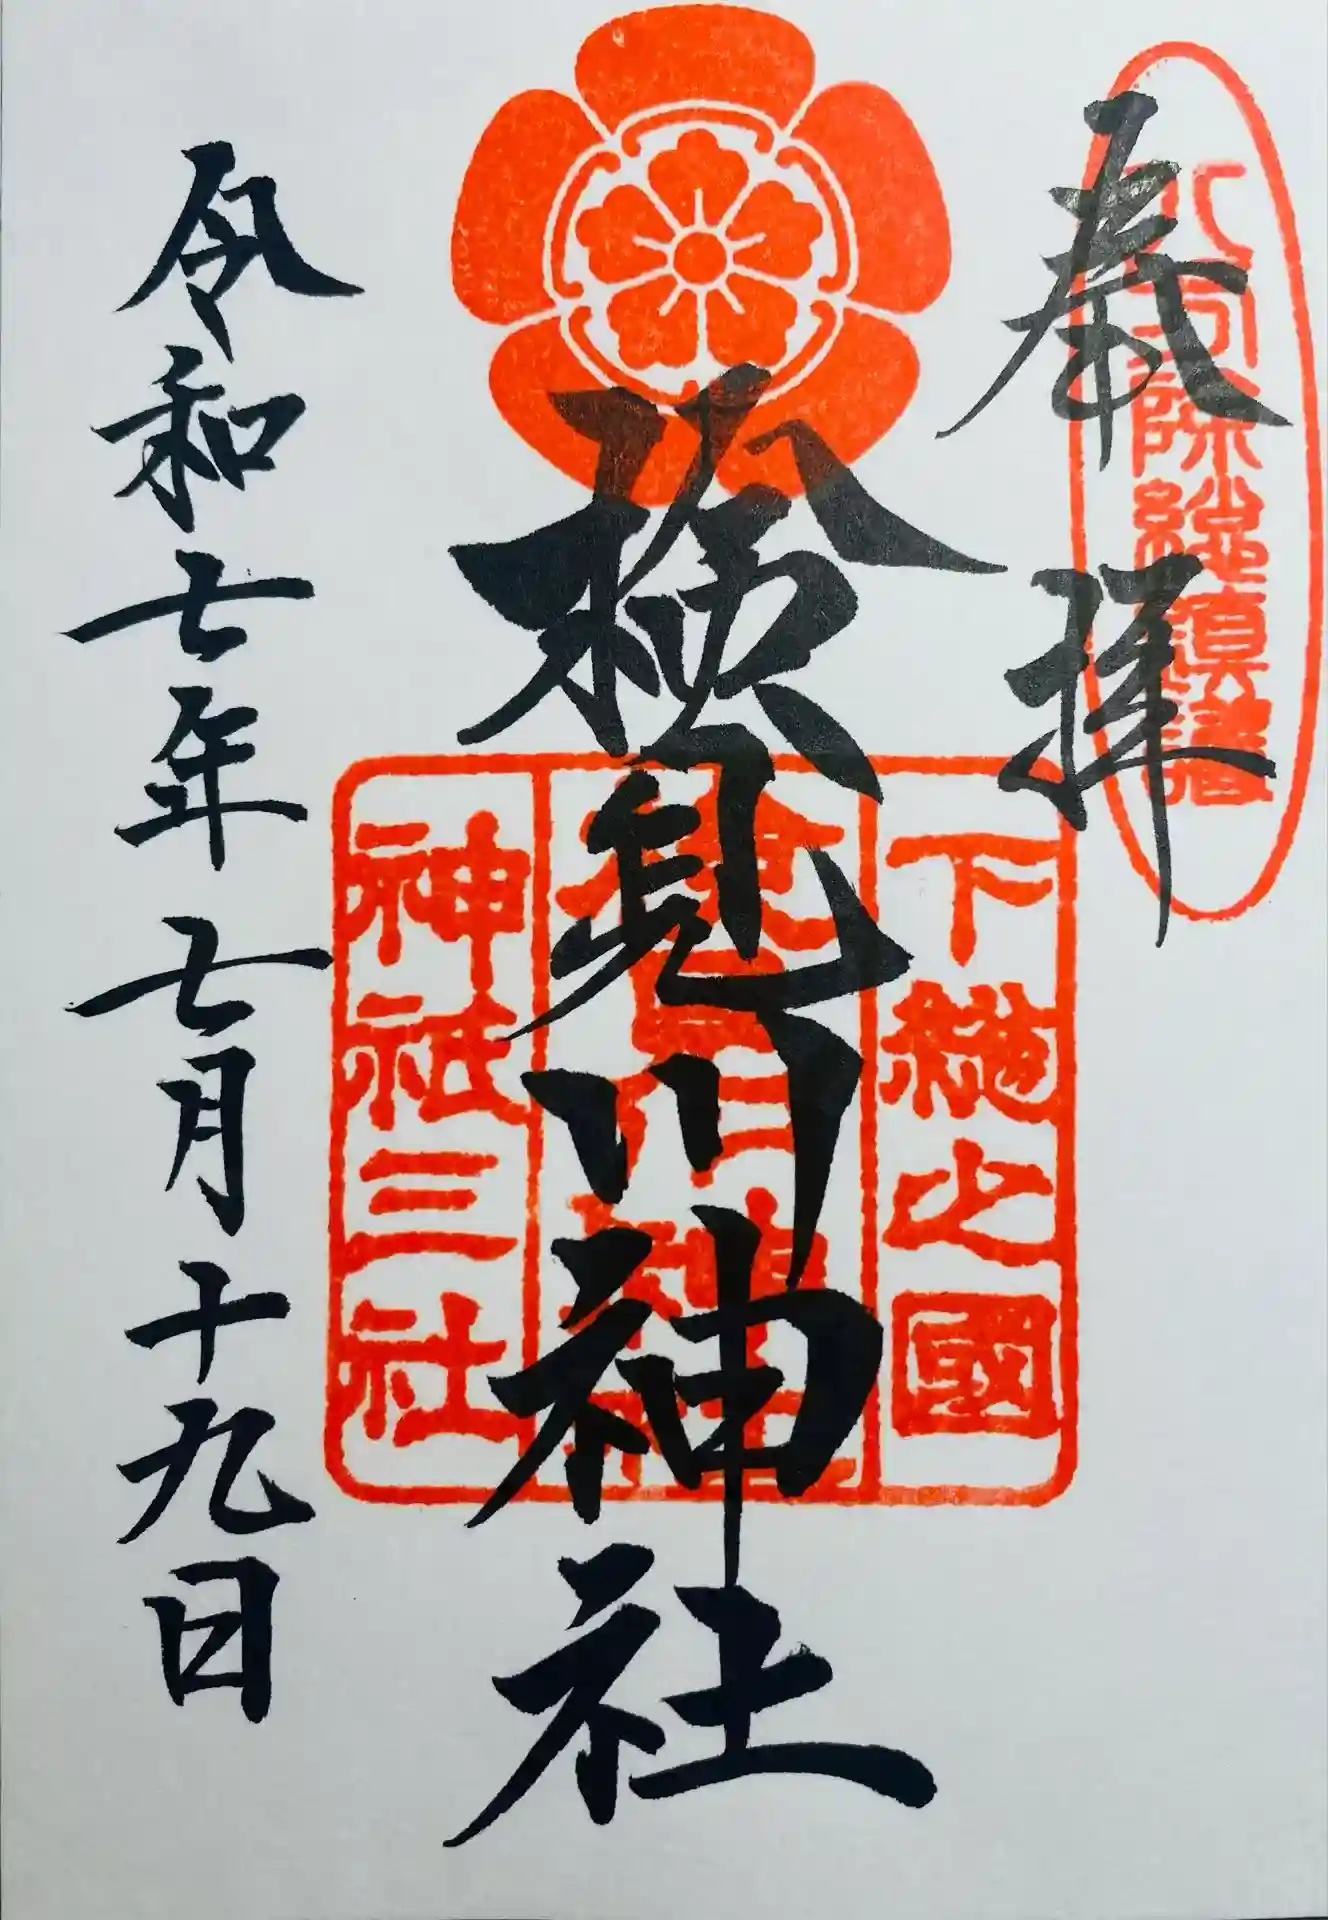 奉拝
八方除総鎮護
下総之國
検見川神社
検見川神社
神祇三社
令和七年七月十九日